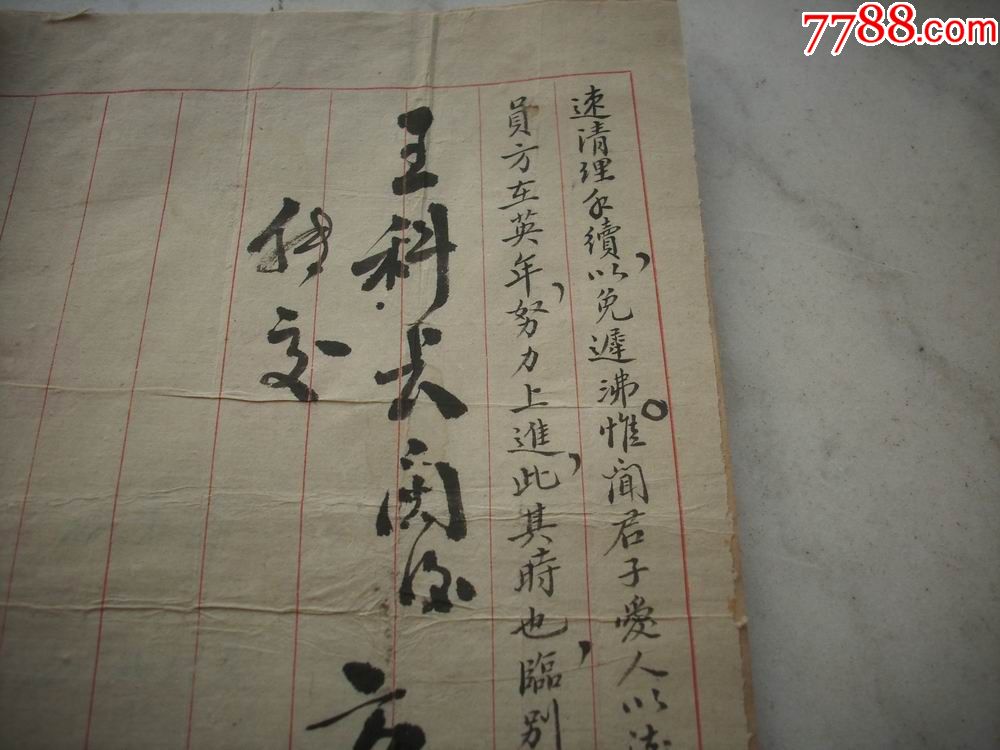 速清理手續，以免遲沸。惟聞君子愛人以德
員方在英年，努力上進，此其時也，臨別
王科長閱後
转交
7788.com